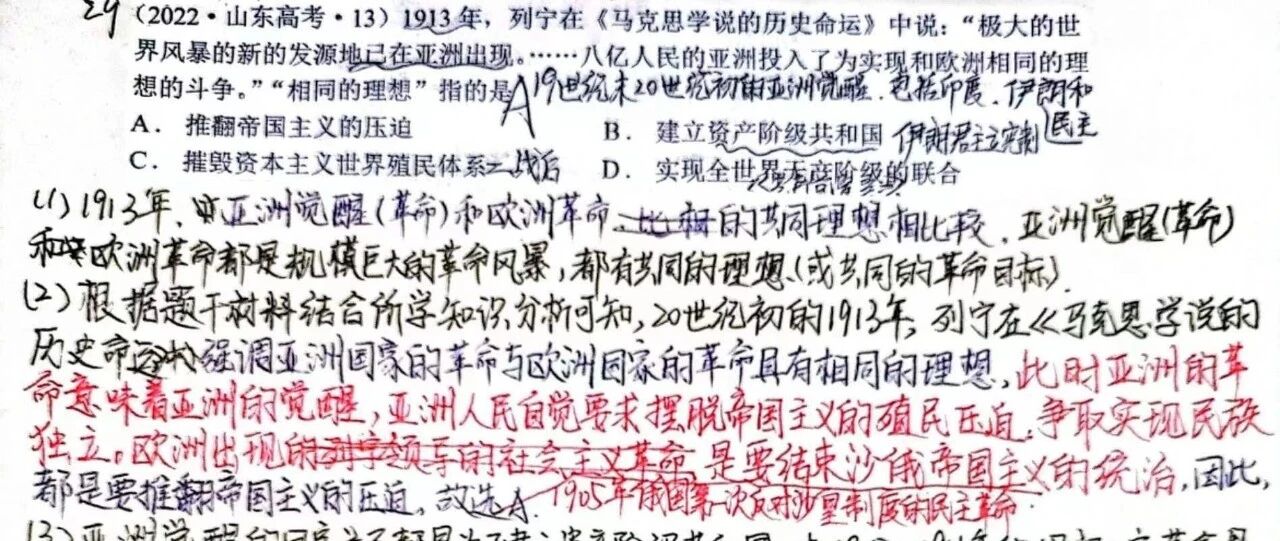 29（2022·山东高考·13）1913年，列宁在《马克思学说的历史命运》中说：“极大的世
界风暴的新的发源地已在亚洲出现。……八亿人民的亚洲投入了为实现和欧洲相同的理
想的斗争。”“相同的理想”指的是A 19世纪末20世纪初的亚洲觉醒.包括印度、伊朗和
A. 推翻帝国主义的压迫 B. 建立资产阶级共和国 伊朗君主立宪制 民主
C. 摧毁资本主义世界殖民体系 二战后 D. 实现全世界无产阶级的联合
(1) 1913年、亚洲觉醒(革命)和欧洲革命、的共同理想相比较、亚洲觉醒(革命)
和欧洲革命都是规模巨大的革命风暴，都有共同的理想(或共同的革命目标).
(2)根据题干材料结合所学知识分析可知，20世纪初的1913年，列宁在《马克思学说的
历史命运》强调亚洲国家的革命与欧洲国家的革命具有相同的理想，此时亚洲的革
命意味着亚洲的觉醒，亚洲人民自觉要求摆脱帝国主义的殖民压迫.争取实现民族
独立。欧洲出现的列宁领导的社会主义革命是要结束沙俄帝国主义的统治,因此,
都是要推翻帝国主义的压迫.故选A. 1905年俄国第一次反对沙皇制度的民主革命.